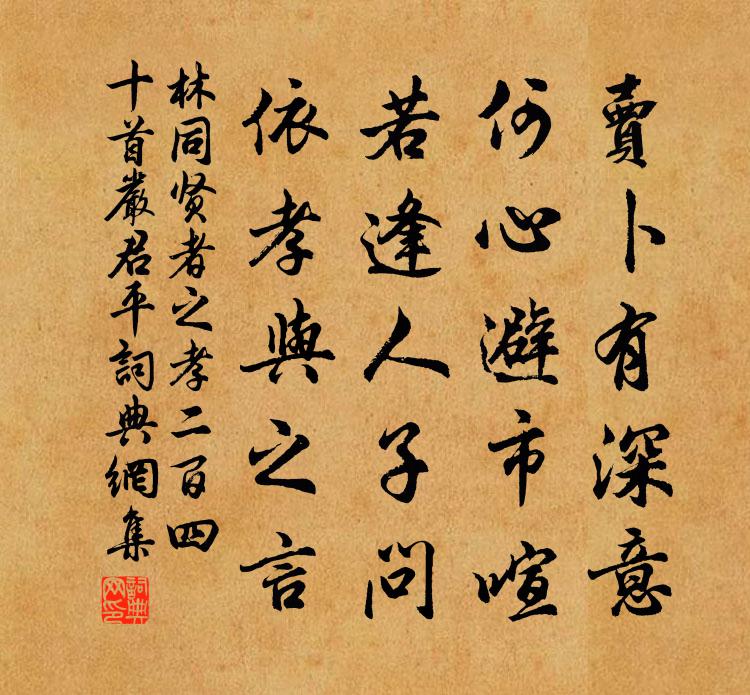 賣卜有深意
何心避市喧
若逢人子問
依孝與之言
林同贤者之孝二百四
十首嚴君平詞典網集
詞典
网印